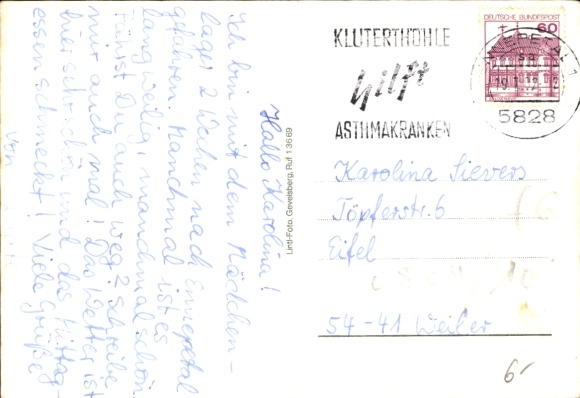 Hallo Karolina!
Ich bin mit dem Mädchen-
lager 2 Wochen nach Ennepetal
gefahren. Manchmal ist es
langweilig, manchmal schön.
Fährst Du auch weg? Schreibe
mir auch mal! Das Wetter ist
hier sehr schön und das Mittag-
essen schmeckt! Viele Grüße
von
Lintl-Foto. Gevelsberg, Ruf 13669
KLUTERTHÖHLE
hilft
ASTHMAKRANKEN
DEUTSCHE BUNDESPOST
60
ENNEPETAL 1
5828
Karolina Sievers
Töpferstr. 6
Eifel
54-41 Weiler
6,-